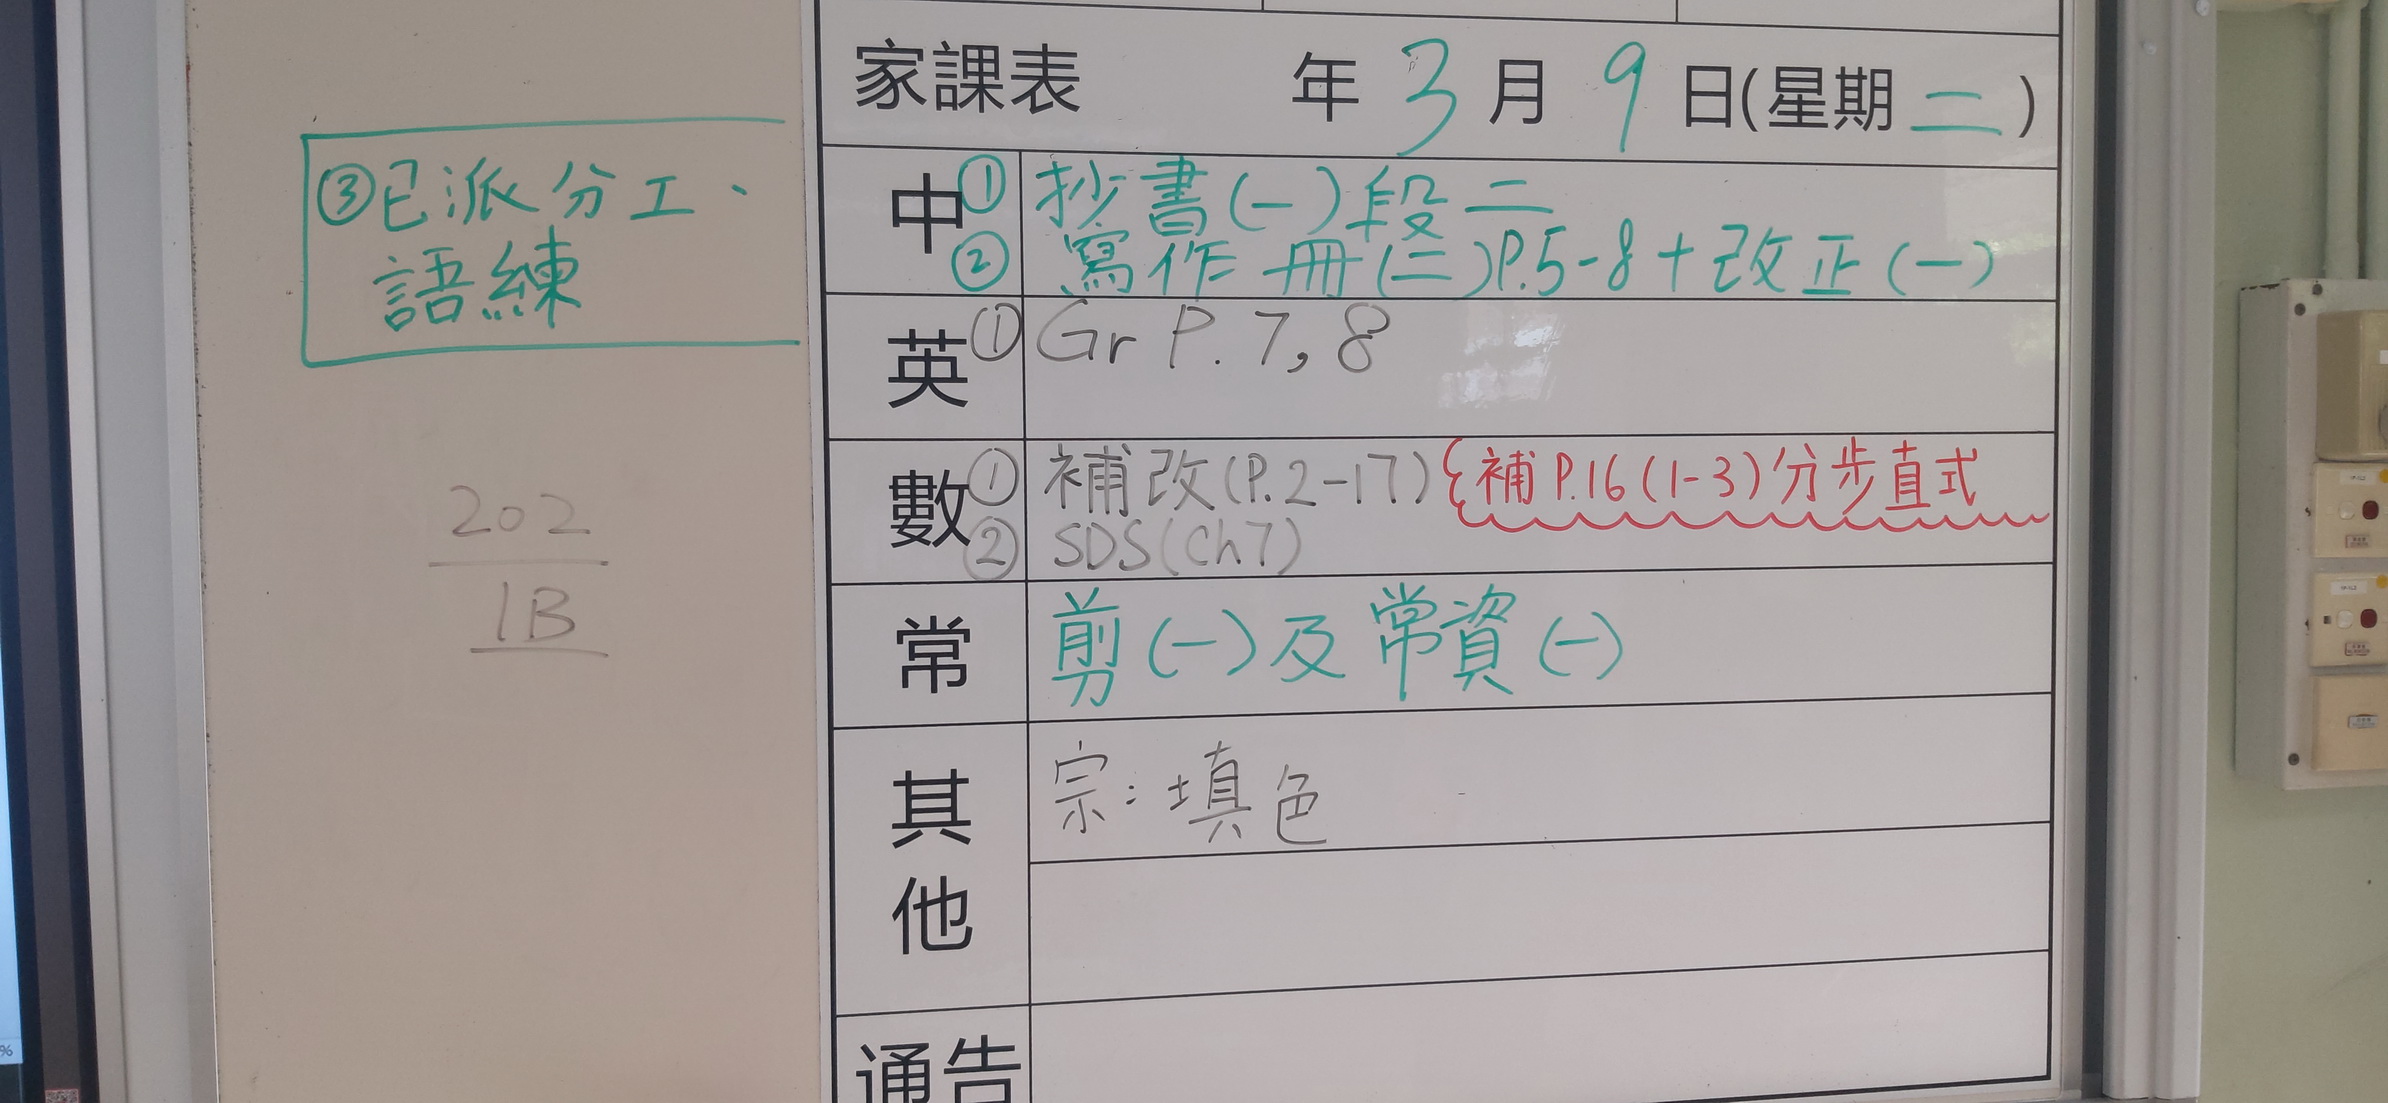 家課表 年 3 月 9 日(星期 二 )
③已派分工、
語練
中 ① 抄書(一)段二
② 寫作冊(二)P.5-8+改正(一)
英 ① Gr P. 7, 8
數 ① 補改(P.2-17) {補P.16(1-3)分步直式
② SDS(Ch7)
常 剪(一)及常資(一)
其他 宗:填色
通告
202
1B
%